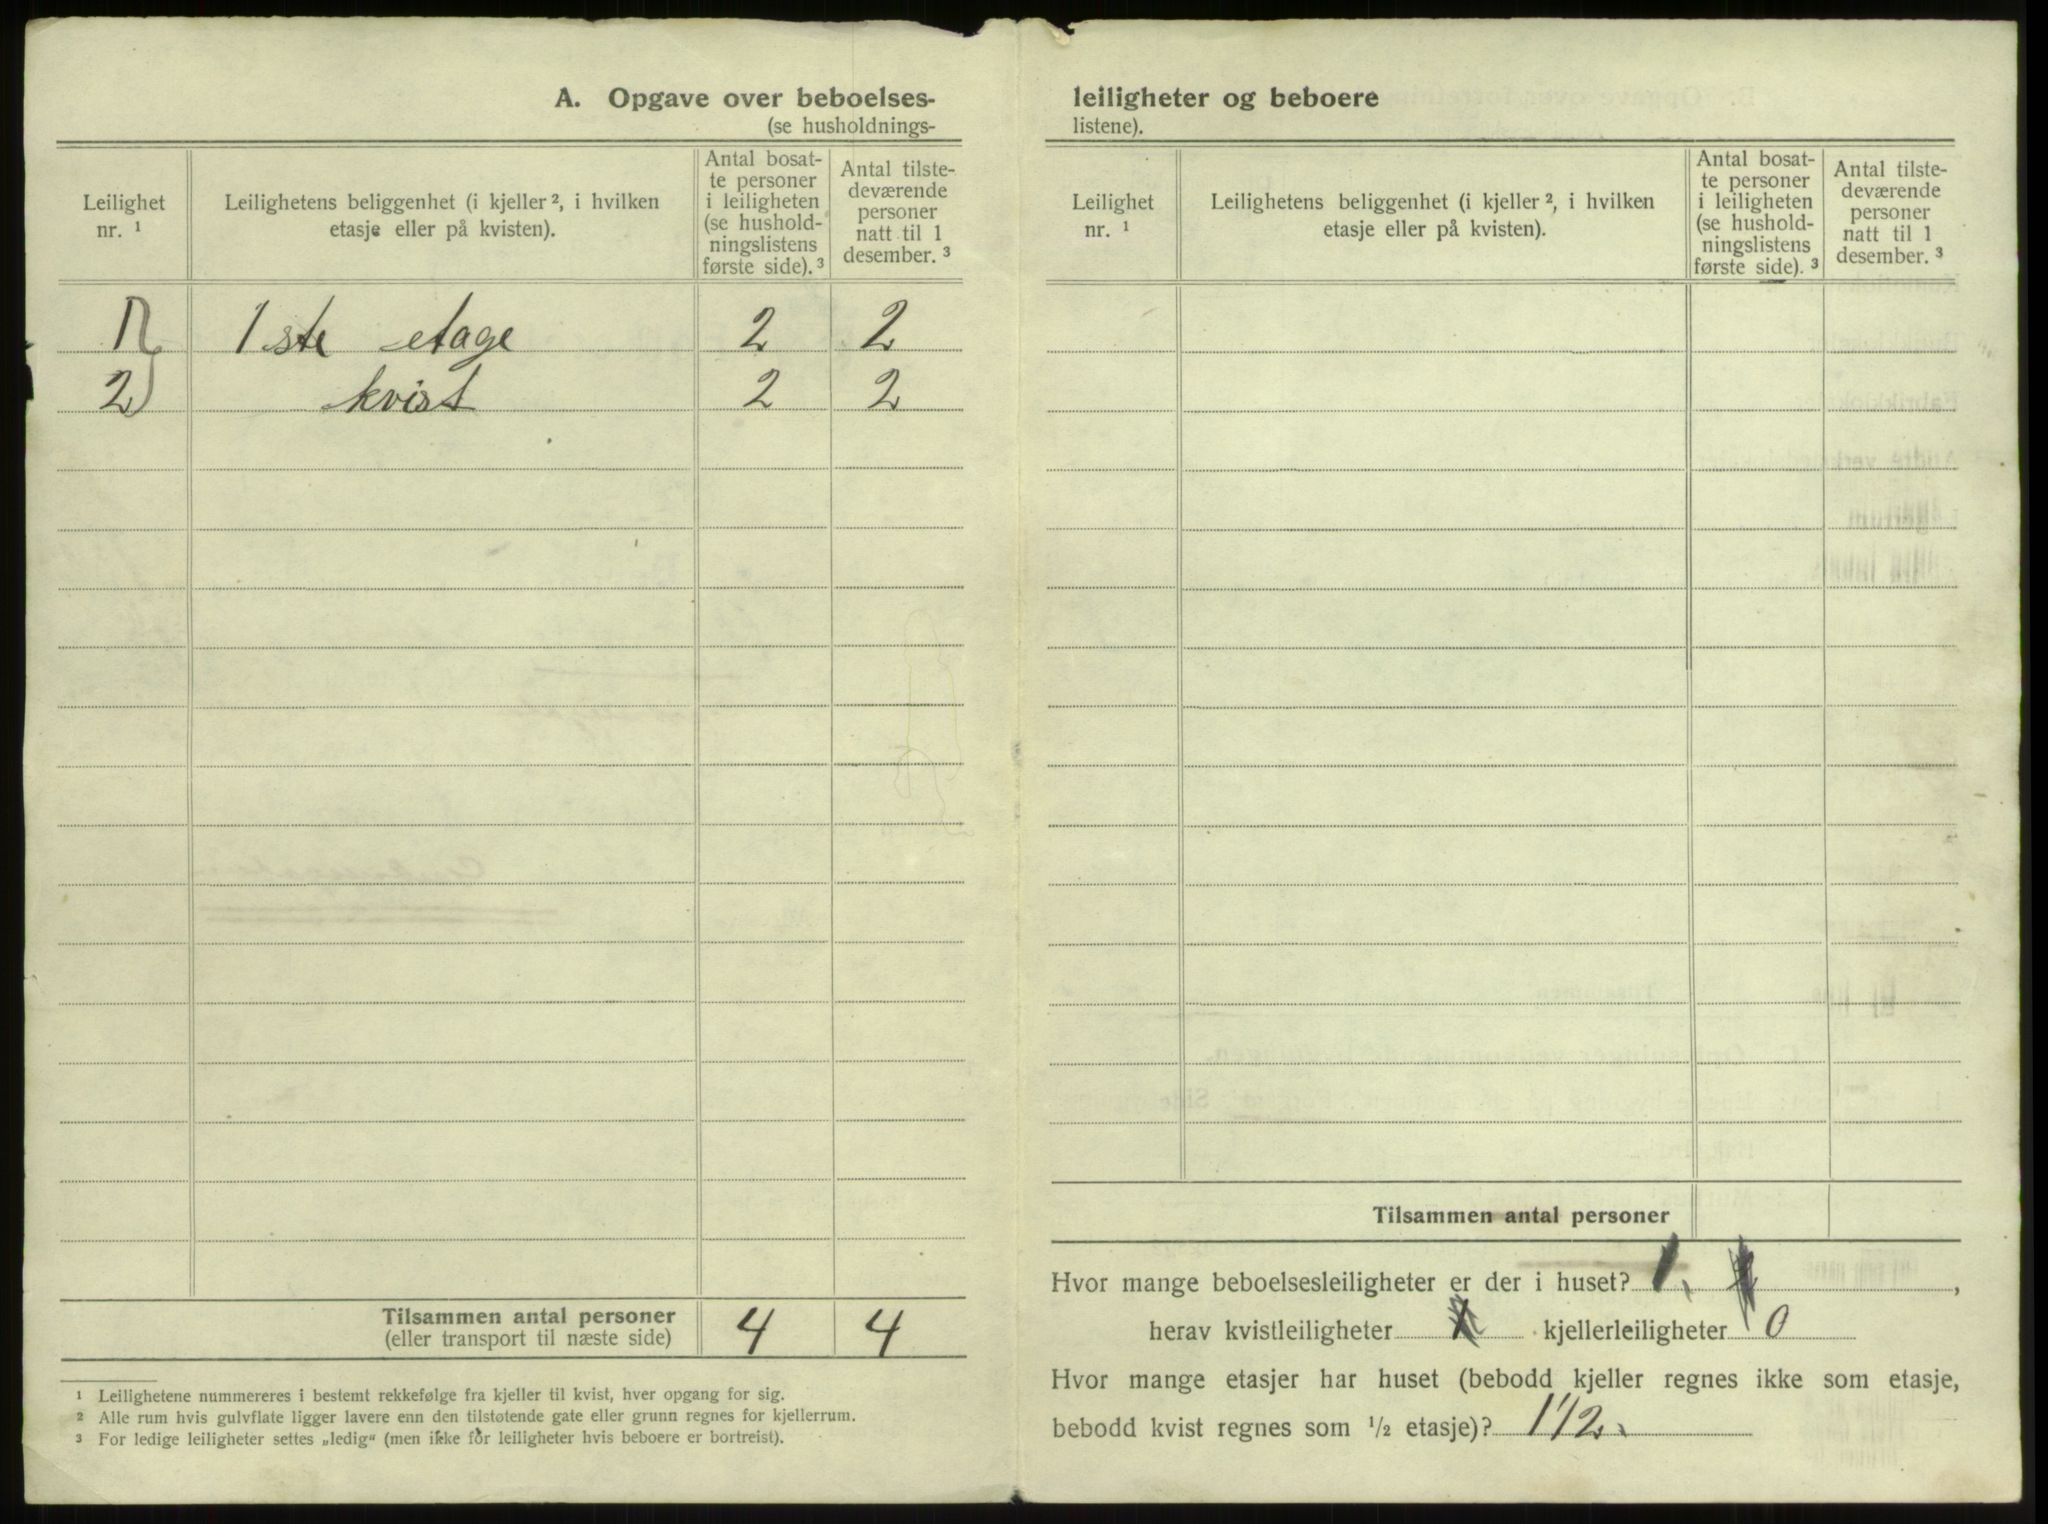 A. Opgave over beboelses-
(se husholdnings-
Leilighet
nr. ¹
Leilighetens beliggenhet (i kjeller ², i hvilken
etasje eller på kvisten).
Antal bosat-
te personer
i leiligheten
(se hushold-
ningslistens
første side). ³
Antal tilste-
deværende
personer
natt til 1
desember. ³
1 1ste etage 2 2
2 kvist 2 2
Tilsammen antal personer
(eller transport til næste side)
4 4
¹ Leilighetene nummereres i bestemt rekkefølge fra kjeller til kvist, hver opgang for sig.
² Alle rum hvis gulvflate ligger lavere enn den tilstøtende gate eller grunn regnes for kjellerrum.
³ For ledige leiligheter settes „ledig“ (men ikke for leiligheter hvis beboere er bortreist).
leiligheter og beboere
listene).
Leilighet
nr. ¹
Leilighetens beliggenhet (i kjeller ², i hvilken
etasje eller på kvisten).
Antal bosat-
te personer
i leiligheten
(se hushold-
ningslistens
første side). ³
Antal tilste-
deværende
personer
natt til 1
desember. ³
Tilsammen antal personer
Hvor mange beboelsesleiligheter er der i huset? 1. ,
herav kvistleiligheter kjellerleiligheter 0
Hvor mange etasjer har huset (bebodd kjeller regnes ikke som etasje,
bebodd kvist regnes som ½ etasje)? 1½.